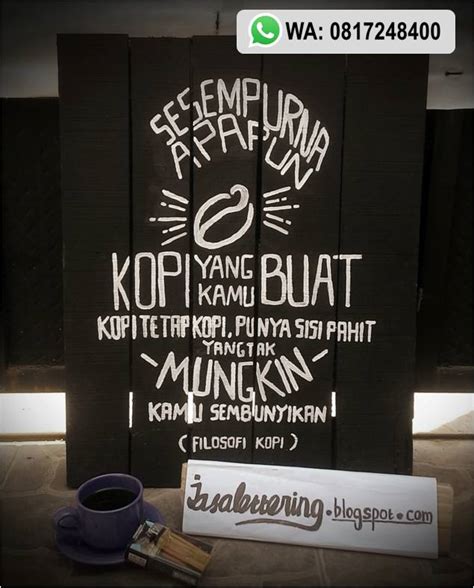 WA: 0817248400
SESEMPURNA
APAPUN
KOPI YANG KAMU BUAT
KOPI TETAP KOPI, PUNYA SISI PAHIT
YANG TAK
MUNGKIN
KAMU SEMBUNYIKAN
(FILOSOFI KOPI)
jasalettering.blogspot.com